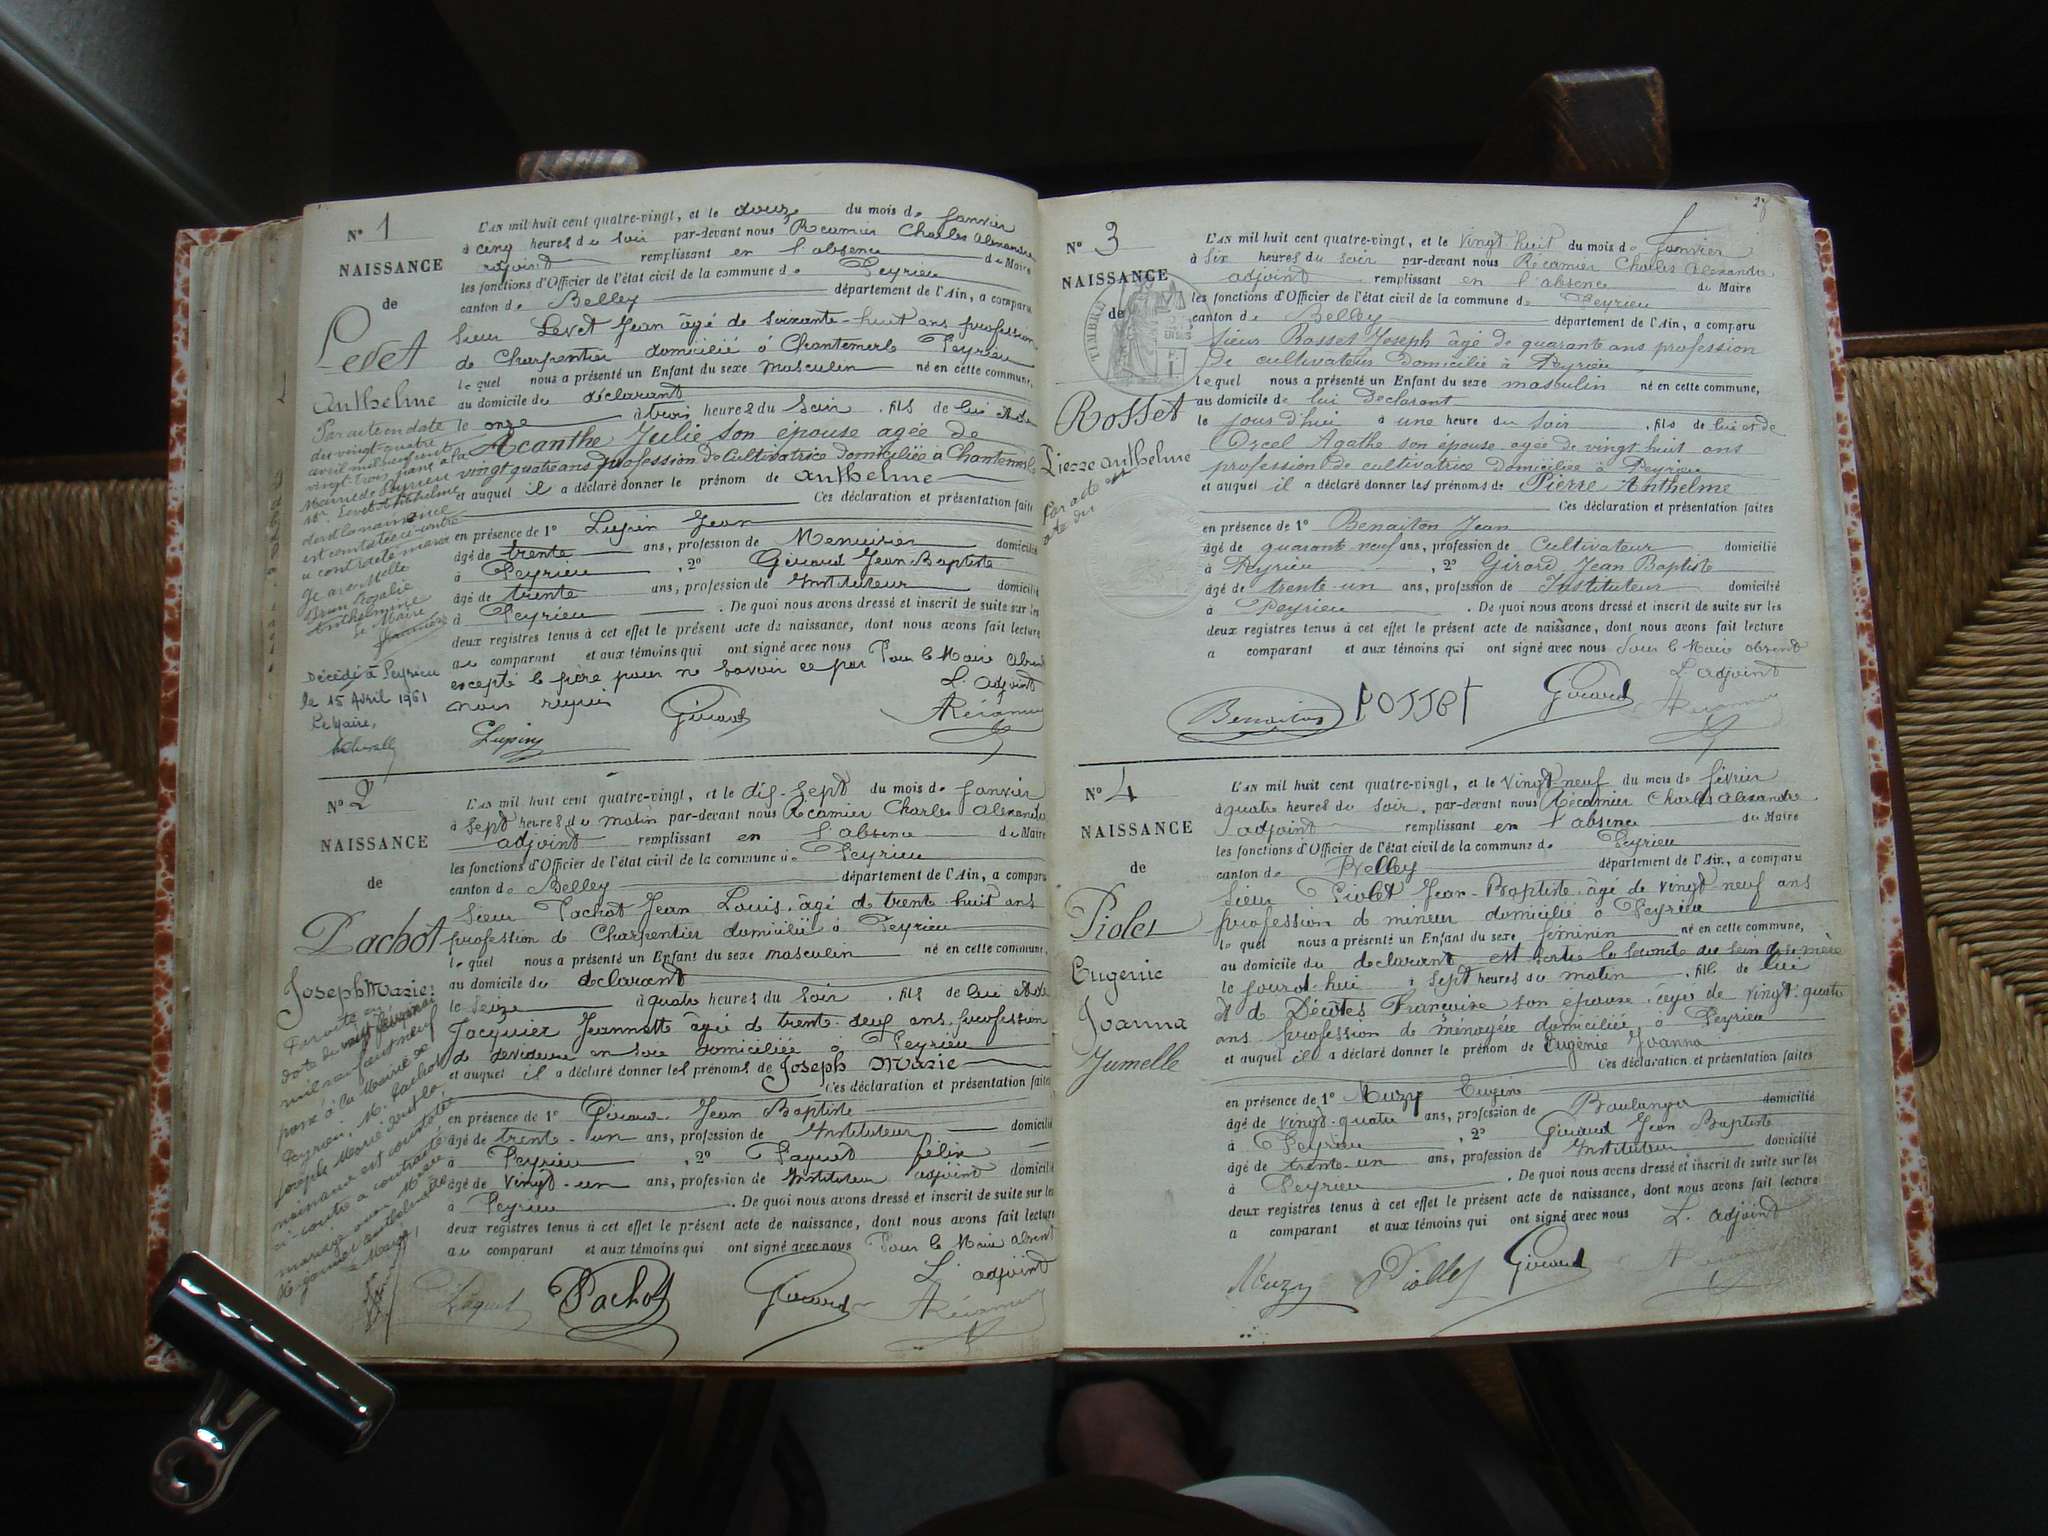 N° 1
NAISSANCE
de
Levet
Anthelme
Par acte en date
du vingt quatre
avril mil neuf cent
vingt trois passé à la
Mairie de Peyrieu
Mr. Levet Anthelme
dont la naissance
est constatée ci-contre
a contracté mariage
avec Melle
Brun Rosalie
Anthelmine
Le Maire
Décédé à Peyrieu
le 15 Avril 1961
Le Maire,
L'AN mil huit cent quatre-vingt, et le douze du mois de Janvier
à cinq heures du soir par-devant nous Récamier Charles Alexandre
adjoint remplissant en l'absence du Maire
les fonctions d'Officier de l'état civil de la commune de Peyrieu
canton de Belley département de l'Ain, a comparu
Sieur Levet Jean âgé de soixante-huit ans profession
de Charpentier domicilié à Chantemerle Peyrieu
lequel nous a présenté un Enfant du sexe masculin né en cette commune,
au domicile du déclarant
le onze à trois heures du soir, fils de lui et de
Acanthe Julie son épouse agée de
vingt quatre ans profession de Cultivatrice domiciliée à Chantemerle
et auquel il a déclaré donner le prénom de Anthelme
Ces déclaration et présentation faites
en présence de 1° Lupin Jean
âgé de trente ans, profession de Menuisier domicilié
à Peyrieu, 2° Girard Jean-Baptiste
âgé de trente ans, profession de Instituteur domicilié
à Peyrieu. De quoi nous avons dressé et inscrit de suite sur les
deux registres tenus à cet effet le présent acte de naissance, dont nous avons fait lecture
au comparant et aux témoins qui ont signé avec nous Pour le Maire absent
excepté le père pour ne savoir ce par L'adjoint
nous requis
Lupin Girard Récamier
N° 2
NAISSANCE
de
Pachot
Joseph Marie
Par acte en
date du vingt
mil neuf cent neuf
passé à la Mairie de
Peyrieu, M. Pachot
Joseph Marie dont la
naissance est constatée
ci-contre a contracté
mariage avec
L'AN mil huit cent quatre-vingt, et le dix-sept du mois de Janvier
à sept heures du matin par-devant nous Récamier Charles Alexandre
adjoint remplissant en l'absence du Maire
les fonctions d'Officier de l'état civil de la commune de Peyrieu
canton de Belley département de l'Ain, a comparu
Sieur Pachot Jean Louis, âgé de trente huit ans
profession de Charpentier domicilié à Peyrieu
lequel nous a présenté un Enfant du sexe masculin né en cette commune,
au domicile du déclarant
le seize à quatre heures du soir, fils de lui et de
Jacquier Jeannette âgée de trente-neuf ans, profession
de devideuse en soie domiciliée à Peyrieu
et auquel il a déclaré donner les prénoms de Joseph Marie
Ces déclaration et présentation faites
en présence de 1° Girard Jean Baptiste
âgé de trente-un ans, profession de Instituteur domicilié
à Peyrieu, 2° Paquet félix
âgé de vingt-un ans, profession de Instituteur adjoint domicilié
à Peyrieu. De quoi nous avons dressé et inscrit de suite sur les
deux registres tenus à cet effet le présent acte de naissance, dont nous avons fait lecture
au comparant et aux témoins qui ont signé avec nous Pour le Maire absent
L'adjoint
Paquet Pachot Girard Récamier
N° 3
NAISSANCE
de
TIMBRE
Rosset
Pierre Anthelme
Par acte
L'AN mil huit cent quatre-vingt, et le vingt huit du mois de Janvier
à six heures du soir par-devant nous Récamier Charles Alexandre
adjoint remplissant en l'absence du Maire
les fonctions d'Officier de l'état civil de la commune de Peyrieu
canton de Belley département de l'Ain, a comparu
Sieur Rosset Joseph âgé de quarante ans profession
de cultivateur Domicilié à Peyrieu
lequel nous a présenté un Enfant du sexe masculin né en cette commune,
au domicile de lui Déclarant
le jour d'hui à une heure du soir, fils de lui et de
Orcel Agathe son épouse agée de vingt huit ans
profession de cultivatrice domiciliée à Peyrieu
et auquel il a déclaré donner les prénoms de Pierre Anthelme
Ces déclaration et présentation faites
en présence de 1° Benaiton Jean
âgé de quarante-neuf ans, profession de Cultivateur domicilié
à Peyrieu, 2° Girard Jean Baptiste
âgé de trente-un ans, profession de Instituteur domicilié
à Peyrieu. De quoi nous avons dressé et inscrit de suite sur les
deux registres tenus à cet effet le présent acte de naissance, dont nous avons fait lecture
a comparant et aux témoins qui ont signé avec nous Pour le Maire absent
L'adjoint
Benaiton rosset Girard Récamier
N° 4
NAISSANCE
de
Piolet
Eugenie
Joanna
Jumelle
L'AN mil huit cent quatre-vingt, et le vingt-neuf du mois de février
à quatre heures du soir, par-devant nous Récamier Charles Alexandre
adjoint remplissant en l'absence du Maire
les fonctions d'Officier de l'état civil de la commune de Peyrieu
canton de Belley département de l'Ain, a comparu
Sieur Piolet Jean-Baptiste, âgé de vingt-neuf ans
profession de mineur domicilié à Peyrieu
lequel nous a présenté un Enfant du sexe féminin né en cette commune,
au domicile du déclarant est sortie la seconde du sein de sa mère
le jourd'hui à sept heures du matin, fille de lui
et de Décotes Françoise son épouse, âgée de vingt-quatre
ans profession de ménagère domiciliée à Peyrieu
et auquel il a déclaré donner le prénom de Eugénie Joanna
Ces déclaration et présentation faites
en présence de 1° Muzy Eugène
âgé de vingt-quatre ans, profession de Boulanger domicilié
à Peyrieu, 2° Girard Jean Baptiste
âgé de trente-un ans, profession de Instituteur domicilié
à Peyrieu. De quoi nous avons dressé et inscrit de suite sur les
deux registres tenus à cet effet le présent acte de naissance, dont nous avons fait lecture
a comparant et aux témoins qui ont signé avec nous L'adjoint
Muzy Piollet Girard